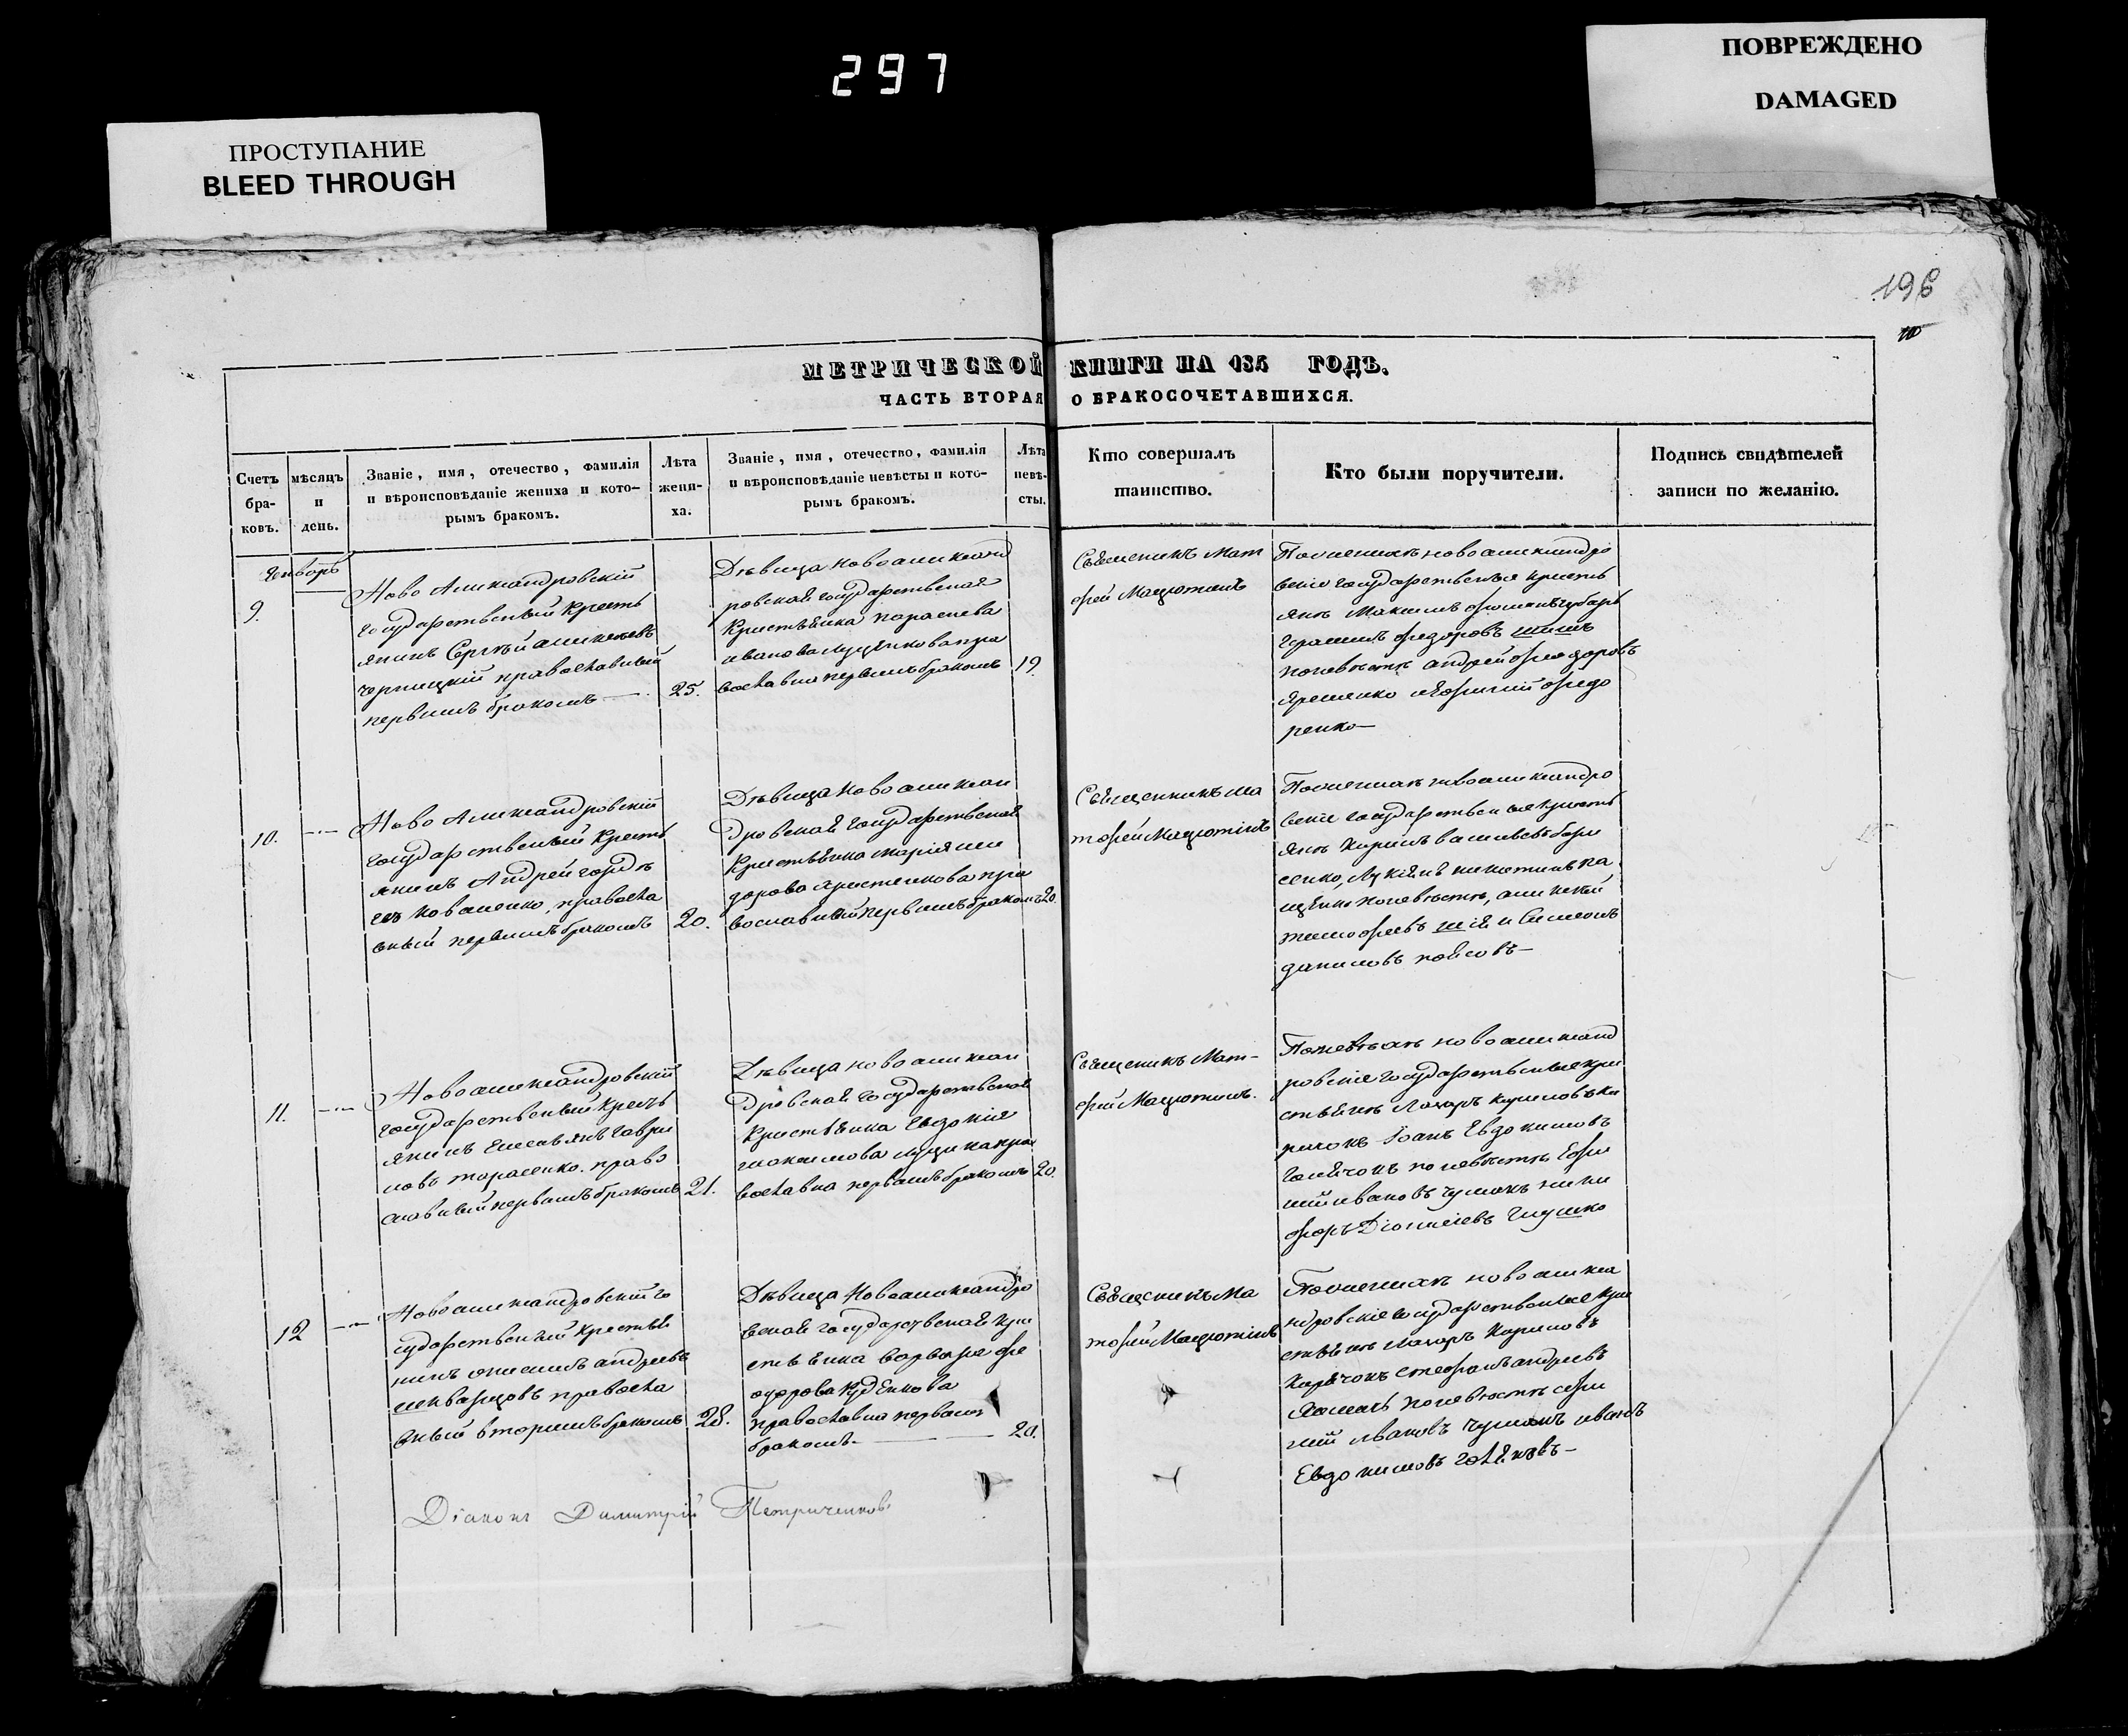 297
ПОВРЕЖДЕНО
DAMAGED
ПРОСТУПАНИЕ
BLEED THROUGH
196
МЕТРИЧЕСКОЙ КНИГИ НА 185 ГОДЪ.
ЧАСТЬ ВТОРАЯ О БРАКОСОЧЕТАВШИХСЯ.
Счетъ
бра-
ковъ.
мѣсяцъ
и
день.
Званіе, имя, отечество, фамилія
и вѣроисповѣданіе жениха и кото-
рымъ бракомъ.
Лѣта
жени-
ха.
Званіе, имя, отечество, фамилія
и вѣроисповѣданіе невѣсты и кото-
рымъ бракомъ.
Лѣта
невѣ-
сты.
Кто совершалъ
таинство.
Кто были поручители.
Подпись свидѣтелей
записи по желанію.
Генворь
9.
Ново Александровскій
государственый кресть
янинъ Сергѣй алексеевъ
чернецкій православный
первымъ бракомъ —
25.
Дѣвица новоалександ
ровская государственая
крестьянка параскева
иванова луценкова пра
вославна первымъ бракомъ
19.
Священикъ Мат
фей Мацютинъ
По женихѣ новоалександро
вскіе государственыя кресть
яне Максимъ
герасимъ федоровъ шишъ
по невѣстѣ андрей феодоровъ
яременко федо
ренко —
10.
Ново Александровскій
государственый кресть
янинъ Андрей гордѣ
евъ коваленко, правосла
вный первымъ бракомъ
20.
Дѣвица новоалексан
дровская государственая
крестьянка марія
дорова христенкова пра
вославный первымъ бракомъ
20.
Священникъ ма
тфей Мацютинъ
По женихѣ новоалександро
вскіе государственыя кресть
яне Кирилъ васильевъ бори
сенко, Лукіянъ никитинъ па
щенко по невѣстѣ, алексей
тимофеевъ шія и Симеонъ
даниловъ
11.
Новоалександровскій
государственый кресть
янинъ Елисей гаври
ловъ тарасенко. право
славный первымъ бракомъ
21.
Дѣвица новоалексан
дровская государственая
крестьянка Евдокія
максимова луцика пра
вославна первымъ бракомъ
20.
Священикъ Мат-
фей Мацютинъ.
По женихѣ новоалександ
ровскіе государственые кре
стьяне Лазарь кириловъ ки
ричокъ Іоанъ Евдокимовъ
голячокъ по невѣстѣ Ефи
мій ивановъ чумакъ ники
форъ Діонисіевъ глушко
12
Новоалександровскій го
сударственый крестья
нинъ онисимъ андреевъ
шкварцовъ правосла
вный вторымъ бракомъ
28.
Дѣвица Новоалександро
вская государственая кре
стьянка варвара фе
одорова куденкова
православна первымъ
бракомъ —
20.
Священикъ Ма
тфей Мацютинъ
По женихѣ новоалекса
ндровскіе государственые кре
стьяне Лазарь Кириловъ
Киричокъ стефанъ андреевъ
по невѣстѣ ефи
мій ивановъ чумакъ иванъ
Евдокимовъ
Діаконъ Димитрій Петриченковъ